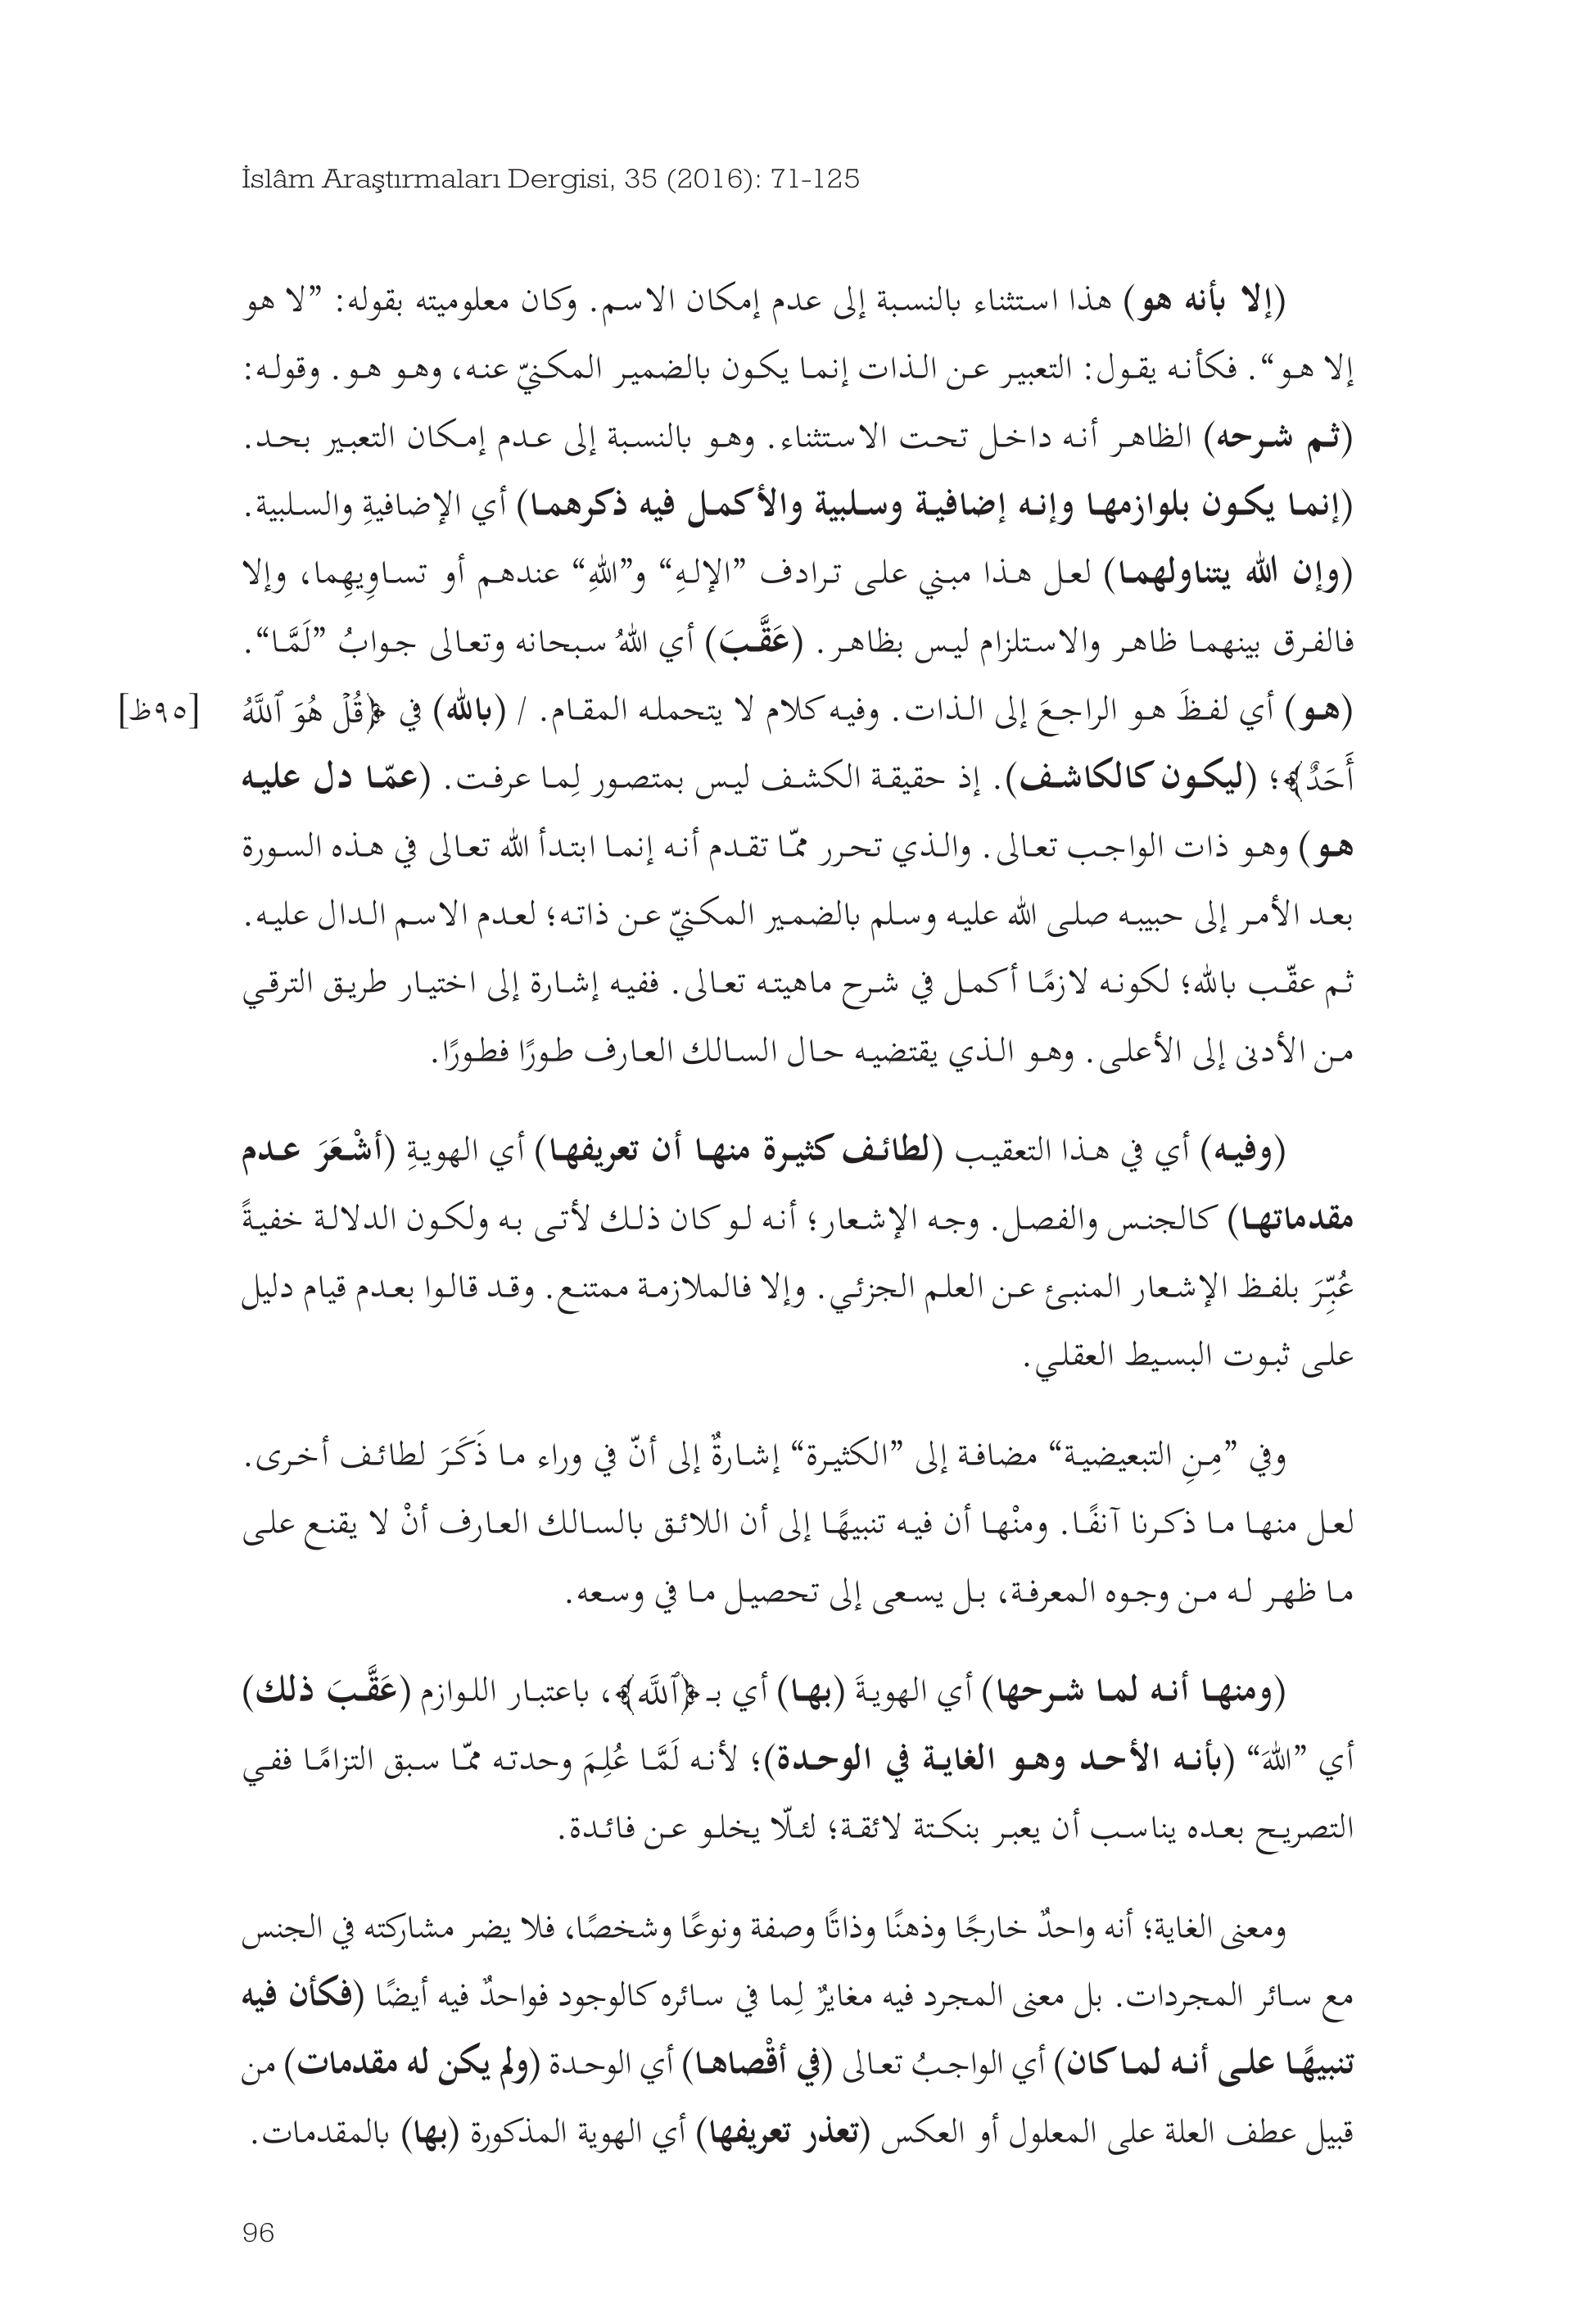 İslâm Araştırmaları Dergisi, 35 (2016): 71-125
(إلا بأنه هو) هذا استثناء بالنسبة إلى عدم إمكان الاسم. وكان معلوميته بقوله: ”لا هو
إلا هو“. فكأنه يقول: التعبير عن الذات إنما يكون بالضمير المكنيّ عنه، وهو هو. وقوله:
(ثم شرحه) الظاهر أنه داخل تحت الاستثناء. وهو بالنسبة إلى عدم إمكان التعبير بحد.
(إنما يكون بلوازمها وإنه إضافية وسلبية والأكمل فيه ذكرهما) أي الإضافيةِ والسلبية.
(وإن الله يتناولهما) لعل هذا مبني على ترادف ”الإلهِ“ و”اللهِ“ عندهم أو تساوِيهِما، وإلا
فالفرق بينهما ظاهر والاستلزام ليس بظاهر. (عَقَّبَ) أي اللهُ سبحانه وتعالى جوابُ ”لَمَّا“.
(هو) أي لفظَ هو الراجعَ إلى الذات. وفيه كلام لا يتحمله المقام. / (بالله) في ﴿قُلْ هُوَ ٱللَّهُ
[٩٥ظ]
أَحَدٌ﴾؛ (ليكون كالكاشف). إذ حقيقة الكشف ليس بمتصور لِما عرفت. (عمّا دل عليه
هو) وهو ذات الواجب تعالى. والذي تحرر ممّا تقدم أنه إنما ابتدأ الله تعالى في هذه السورة
بعد الأمر إلى حبيبه صلى الله عليه وسلم بالضمير المكنيّ عن ذاته؛ لعدم الاسم الدال عليه.
ثم عقّب بالله؛ لكونه لازمًا أكمل في شرح ماهيته تعالى. ففيه إشارة إلى اختيار طريق الترقي
من الأدنى إلى الأعلى. وهو الذي يقتضيه حال السالك العارف طورًا فطورًا.
(وفيه) أي في هذا التعقيب (لطائف كثيرة منها أن تعريفها) أي الهويةِ (أشْعَرَ عدم
مقدماتها) كالجنس والفصل. وجه الإشعار؛ أنه لو كان ذلك لأتى به ولكون الدلالة خفيةً
عُبِّرَ بلفظ الإشعار المنبئ عن العلم الجزئي. وإلا فالملازمة ممتنع. وقد قالوا بعدم قيام دليل
على ثبوت البسيط العقلي.
وفي ”مِنِ التبعيضية“ مضافة إلى ”الكثيرة“ إشارةٌ إلى أنّ في وراء ما ذَكَرَ لطائف أخرى.
لعل منها ما ذكرنا آنفًا. ومنْها أن فيه تنبيهًا إلى أن اللائق بالسالك العارف أنْ لا يقنع على
ما ظهر له من وجوه المعرفة، بل يسعى إلى تحصيل ما في وسعه.
(ومنها أنه لما شرحها) أي الهويةَ (بها) أي بـ﴿ٱللَّه﴾، باعتبار اللوازم (عَقَّبَ ذلك)
أي ”اللهَ“ (بأنه الأحد وهو الغاية في الوحدة)؛ لأنه لَمَّا عُلِمَ وحدته ممّا سبق التزامًا ففي
التصريح بعده يناسب أن يعبر بنكتة لائقة؛ لئلّا يخلو عن فائدة.
ومعنى الغاية؛ أنه واحدٌ خارجًا وذهنًا وذاتًا وصفة ونوعًا وشخصًا، فلا يضر مشاركته في الجنس
مع سائر المجردات. بل معنى المجرد فيه مغايرٌ لِما في سائره كالوجود فواحدٌ فيه أيضًا (فكأن فيه
تنبيهًا على أنه لما كان) أي الواجبُ تعالى (في أقْصاها) أي الوحدة (ولم يكن له مقدمات) من
قبيل عطف العلة على المعلول أو العكس (تعذر تعريفها) أي الهوية المذكورة (بها) بالمقدمات.
96